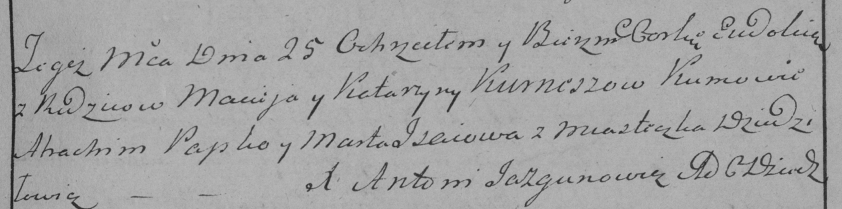 Tegoż Mca Dnia 25 Ochrzciłem y Bierzm Corkę Eudokią
z Rodzicow Macieja y Katarzyny Kurneszow Kumowie
Abrachim Papko y Marta Isaiowa z Miasteczka Dziedzi
łowicz — — X Antoni Jazgunowicz AD C Dziedz